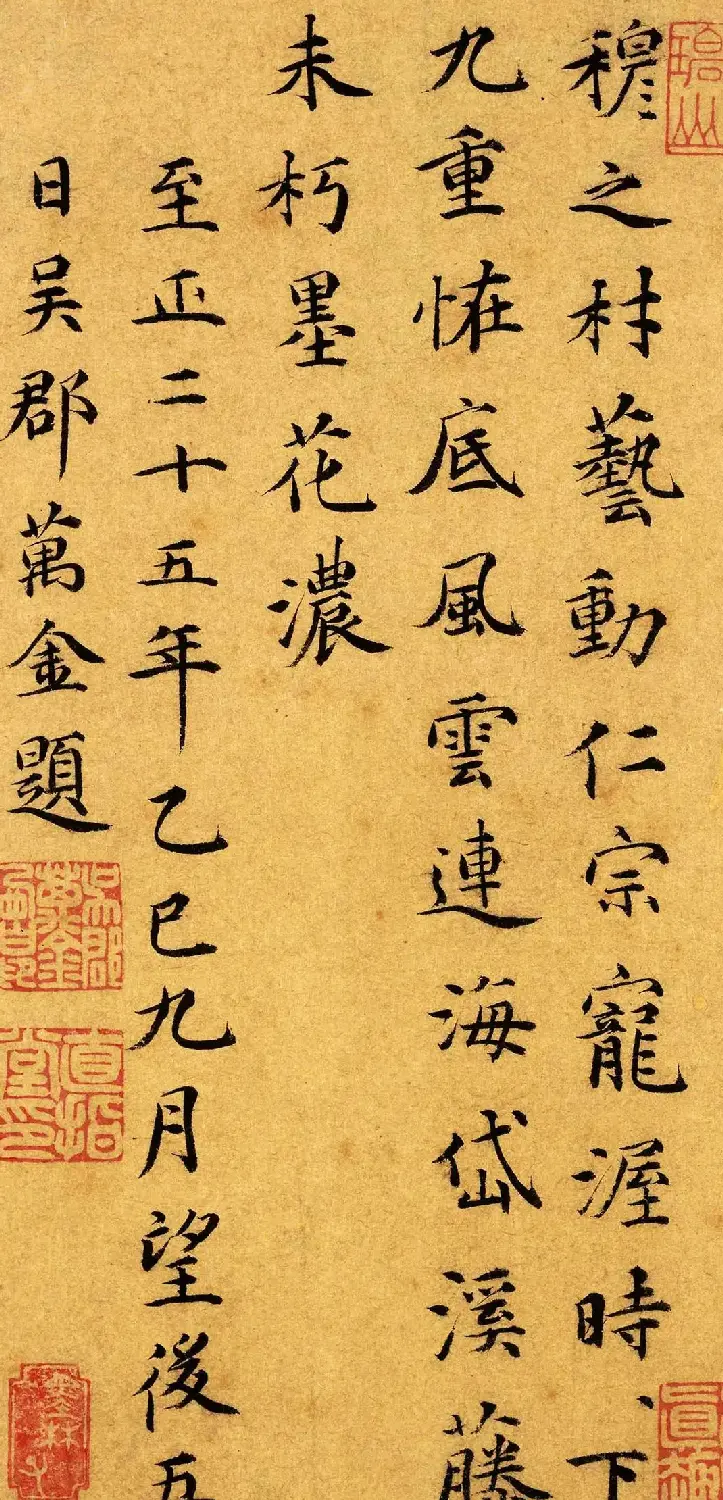 穆之材藝動仁宗寵渥時、下
九重恠底風雲連海岱溪藤
未朽墨花濃
至正二十五年乙巳九月望後五
日吴郡萬金題
吳郡萬金
直指堂印